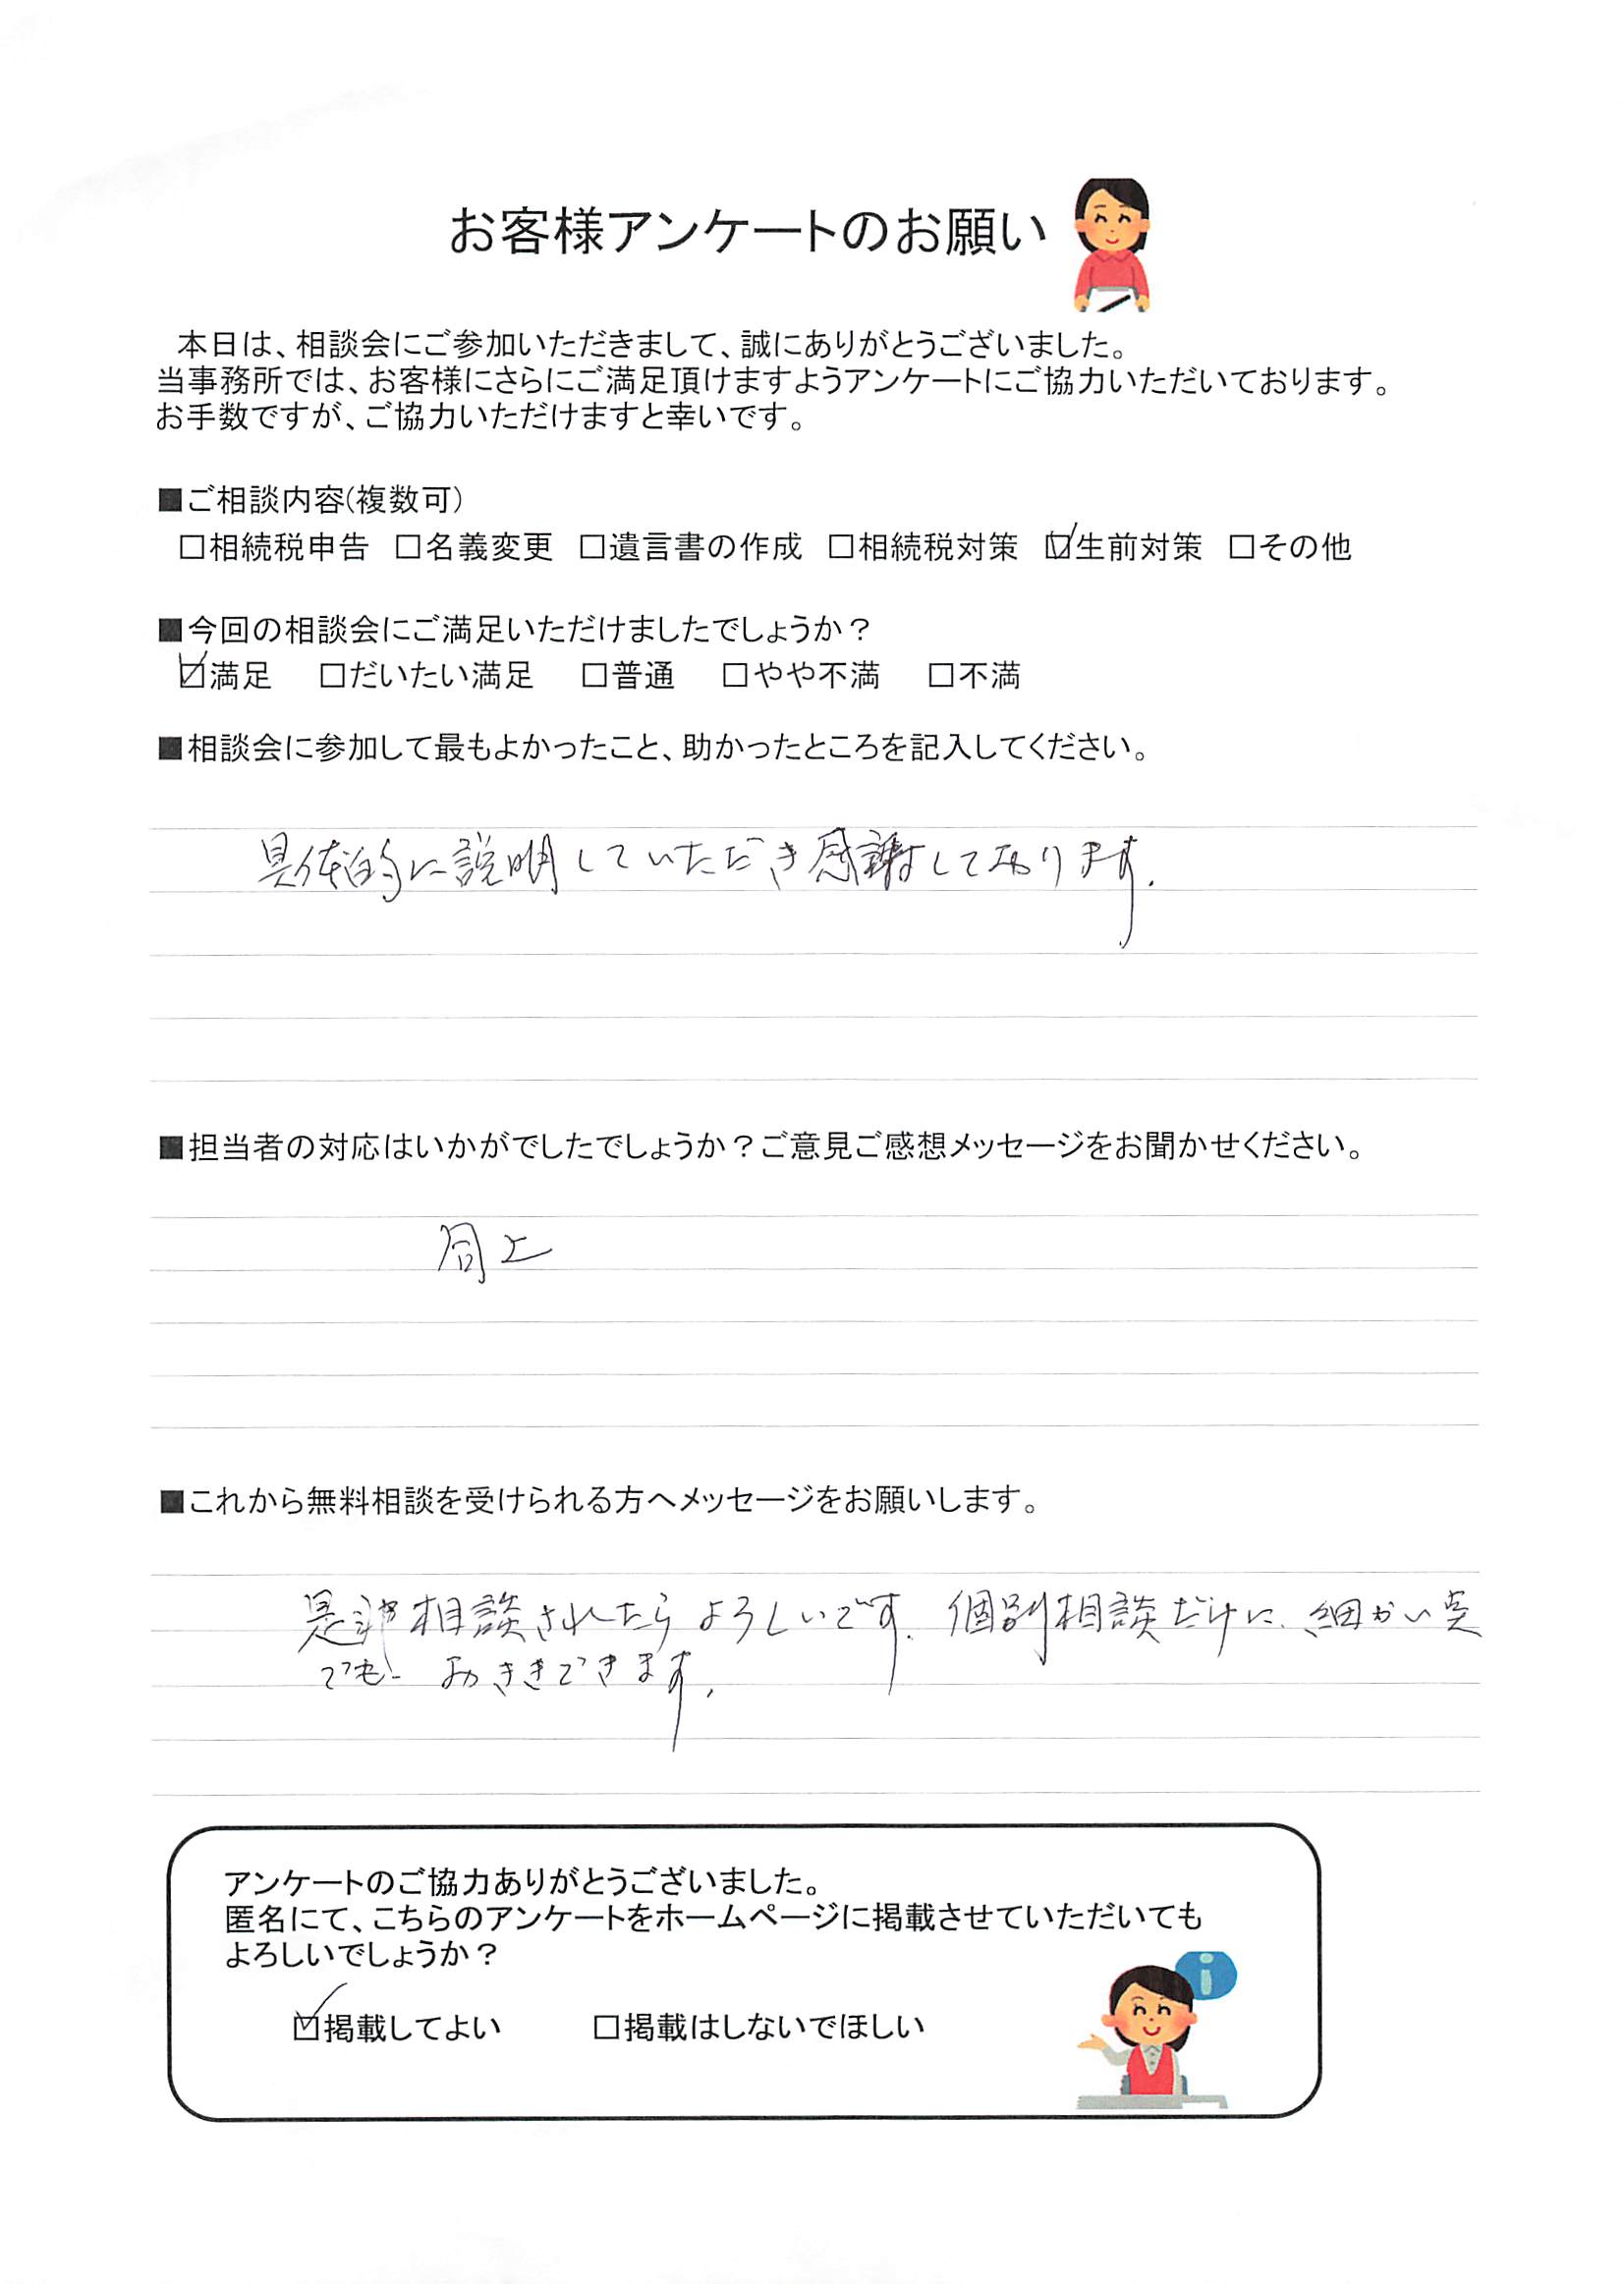 お客様アンケートのお願い
本日は、相談会にご参加いただきまして、誠にありがとうございました。
当事務所では、お客様にさらにご満足頂けますようアンケートにご協力いただいております。
お手数ですが、ご協力いただけますと幸いです。
■ご相談内容(複数可)
□相続税申告 □名義変更 □遺言書の作成 □相続税対策 ☑生前対策 □その他
■今回の相談会にご満足いただけましたでしょうか？
☑満足 □だいたい満足 □普通 □やや不満 □不満
■相談会に参加して最もよかったこと、助かったところを記入してください。
具体的に説明していただき感謝しております.
■担当者の対応はいかがでしたでしょうか？ご意見ご感想メッセージをお聞かせください。
同上
■これから無料相談を受けられる方へメッセージをお願いします。
是非相談されたらよろしいです. 個別相談だけに、細かい点
でも おききできます.
アンケートのご協力ありがとうございました。
匿名にて、こちらのアンケートをホームページに掲載させていただいても
よろしいでしょうか？
i
☑掲載してよい □掲載はしないでほしい